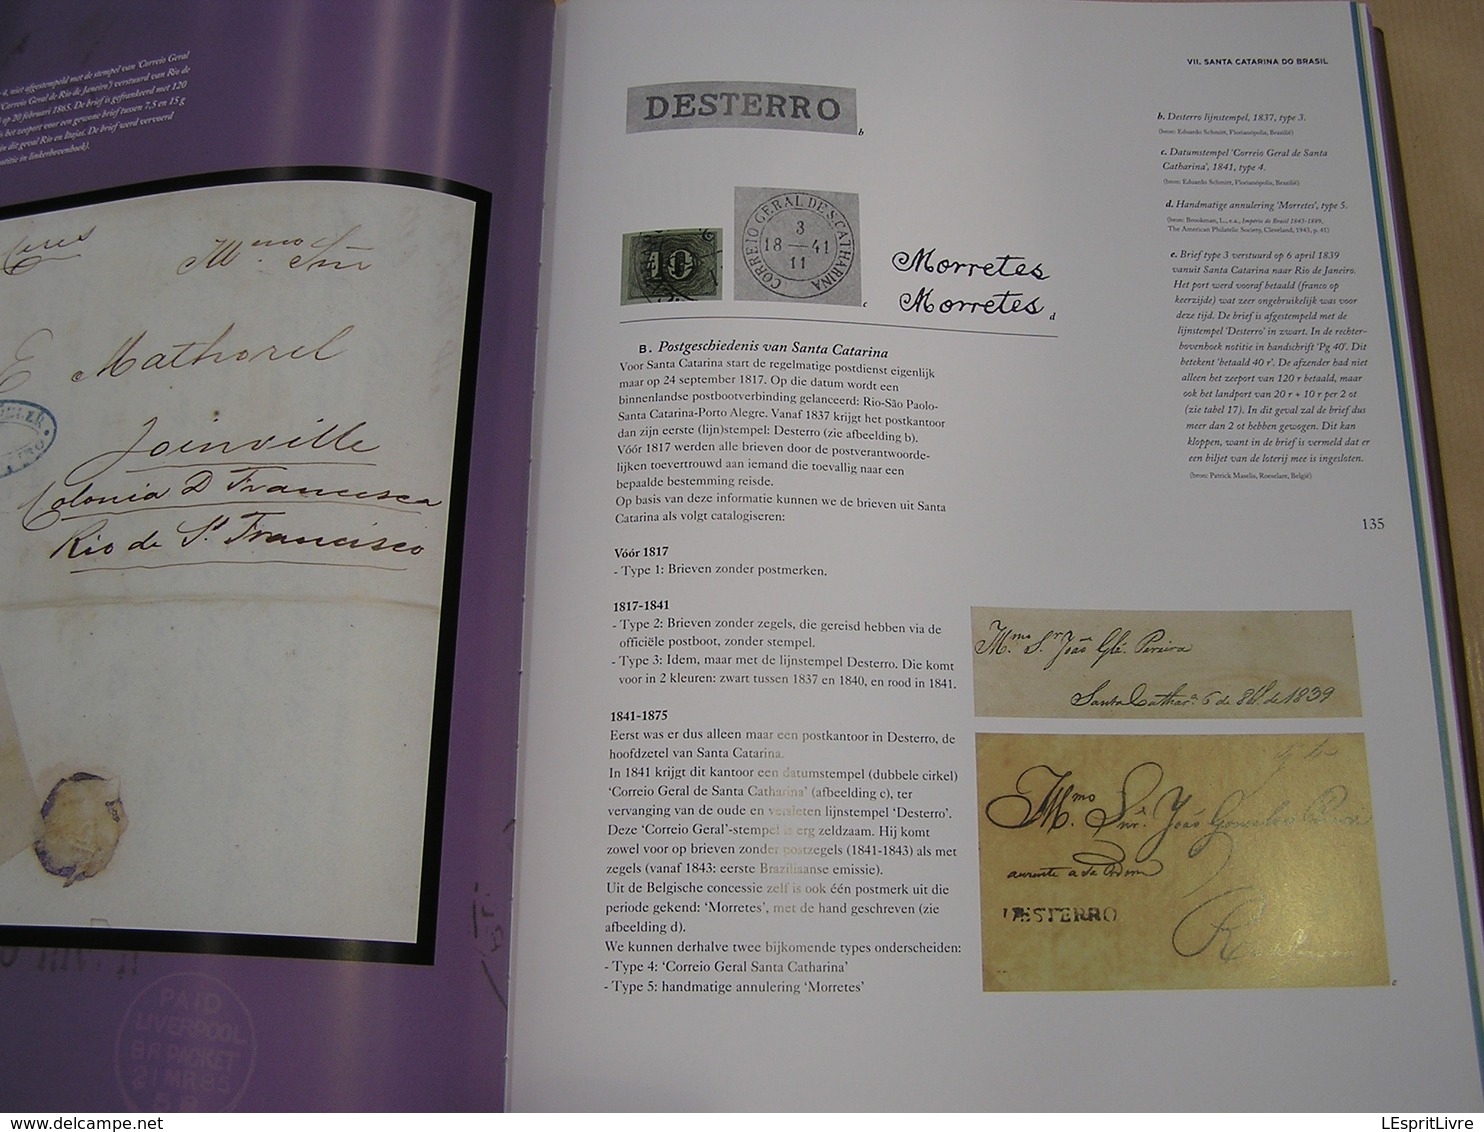 4, niet afgestempeld met de stempel van 'Correio Geral
'Correio Geral de Rio de Janeiro') verstuurd van Rio de
) op 20 februari 1865. De brief is gefrankeerd met 120
is het zeeport voor een gewone brief tussen 7,5 en 15 g
in dit geval Rio en Itajaí. De brief werd vervoerd
notitie in linkerbovenhoek).
Mmo Snr
E Mathorel
Joinville
Colonia D Francisca
Rio de S. Francisco
PAID
LIVERPOOL
BR PACKET
21 MR 85
VII. SANTA CATARINA DO BRASIL
DESTERRO
b
10
CORREIO GERAL DE S. CATHARINA
3
18 — 41
11
c
Morretes
Morretes
d
b. Desterro lijnstempel, 1837, type 3.
(bron: Eduardo Schmitt, Florianópolis, Brazilië)
c. Datumstempel 'Correio Geral de Santa
Catharina', 1841, type 4.
(bron: Eduardo Schmitt, Florianópolis, Brazilië)
d. Handmatige annulering 'Morretes', type 5.
(bron: Brookman, L., e.a., Imperio do Brasil 1843-1889,
The American Philatelic Society, Cleveland, 1943, p. 41)
e. Brief type 3 verstuurd op 6 april 1839
vanuit Santa Catarina naar Rio de Janeiro.
Het port werd vooraf betaald (franco op
keerzijde) wat zeer ongebruikelijk was voor
deze tijd. De brief is afgestempeld met de
lijnstempel 'Desterro' in zwart. In de rechter-
bovenhoek notitie in handschrift 'Pg 40'. Dit
betekent 'betaald 40 r'. De afzender had niet
alleen het zeeport van 120 r betaald, maar
ook het landport van 20 r + 10 r per 2 ot
(zie tabel 17). In dit geval zal de brief dus
meer dan 2 ot hebben gewogen. Dit kan
kloppen, want in de brief is vermeld dat er
een biljet van de loterij mee is ingesloten.
(bron: Patrick Maselis, Roeselare, België)
135
B. Postgeschiedenis van Santa Catarina
Voor Santa Catarina start de regelmatige postdienst eigenlijk
maar op 24 september 1817. Op die datum wordt een
binnenlandse postbootverbinding gelanceerd: Rio-São Paolo-
Santa Catarina-Porto Alegre. Vanaf 1837 krijgt het postkantoor
dan zijn eerste (lijn)stempel: Desterro (zie afbeelding b).
Vóór 1817 werden alle brieven door de postverantwoorde-
lijken toevertrouwd aan iemand die toevallig naar een
bepaalde bestemming reisde.
Op basis van deze informatie kunnen we de brieven uit Santa
Catarina als volgt catalogiseren:
Vóór 1817
- Type 1: Brieven zonder postmerken.
1817-1841
- Type 2: Brieven zonder zegels, die gereisd hebben via de
officiële postboot, zonder stempel.
- Type 3: Idem, maar met de lijnstempel Desterro. Die komt
voor in 2 kleuren: zwart tussen 1837 en 1840, en rood in 1841.
1841-1875
Eerst was er dus alleen maar een postkantoor in Desterro, de
hoofdzetel van Santa Catarina.
In 1841 krijgt dit kantoor een datumstempel (dubbele cirkel)
'Correio Geral de Santa Catharina' (afbeelding c), ter
vervanging van de oude en versleten lijnstempel 'Desterro'.
Deze 'Correio Geral'-stempel is erg zeldzaam. Hij komt
zowel voor op brieven zonder postzegels (1841-1843) als met
zegels (vanaf 1843: eerste Braziliaanse emissie).
Uit de Belgische concessie zelf is ook één postmerk uit die
periode gekend: 'Morretes', met de hand geschreven (zie
afbeelding d).
We kunnen derhalve twee bijkomende types onderscheiden:
- Type 4: 'Correio Geral Santa Catharina'
- Type 5: handmatige annulering 'Morretes'
Mmo Sr João Glz Pereira
Santa Cathara 6 de de 1839
Mmo Snr João Gonsalves Pereira
DESTERRO
e
LEspritLivre